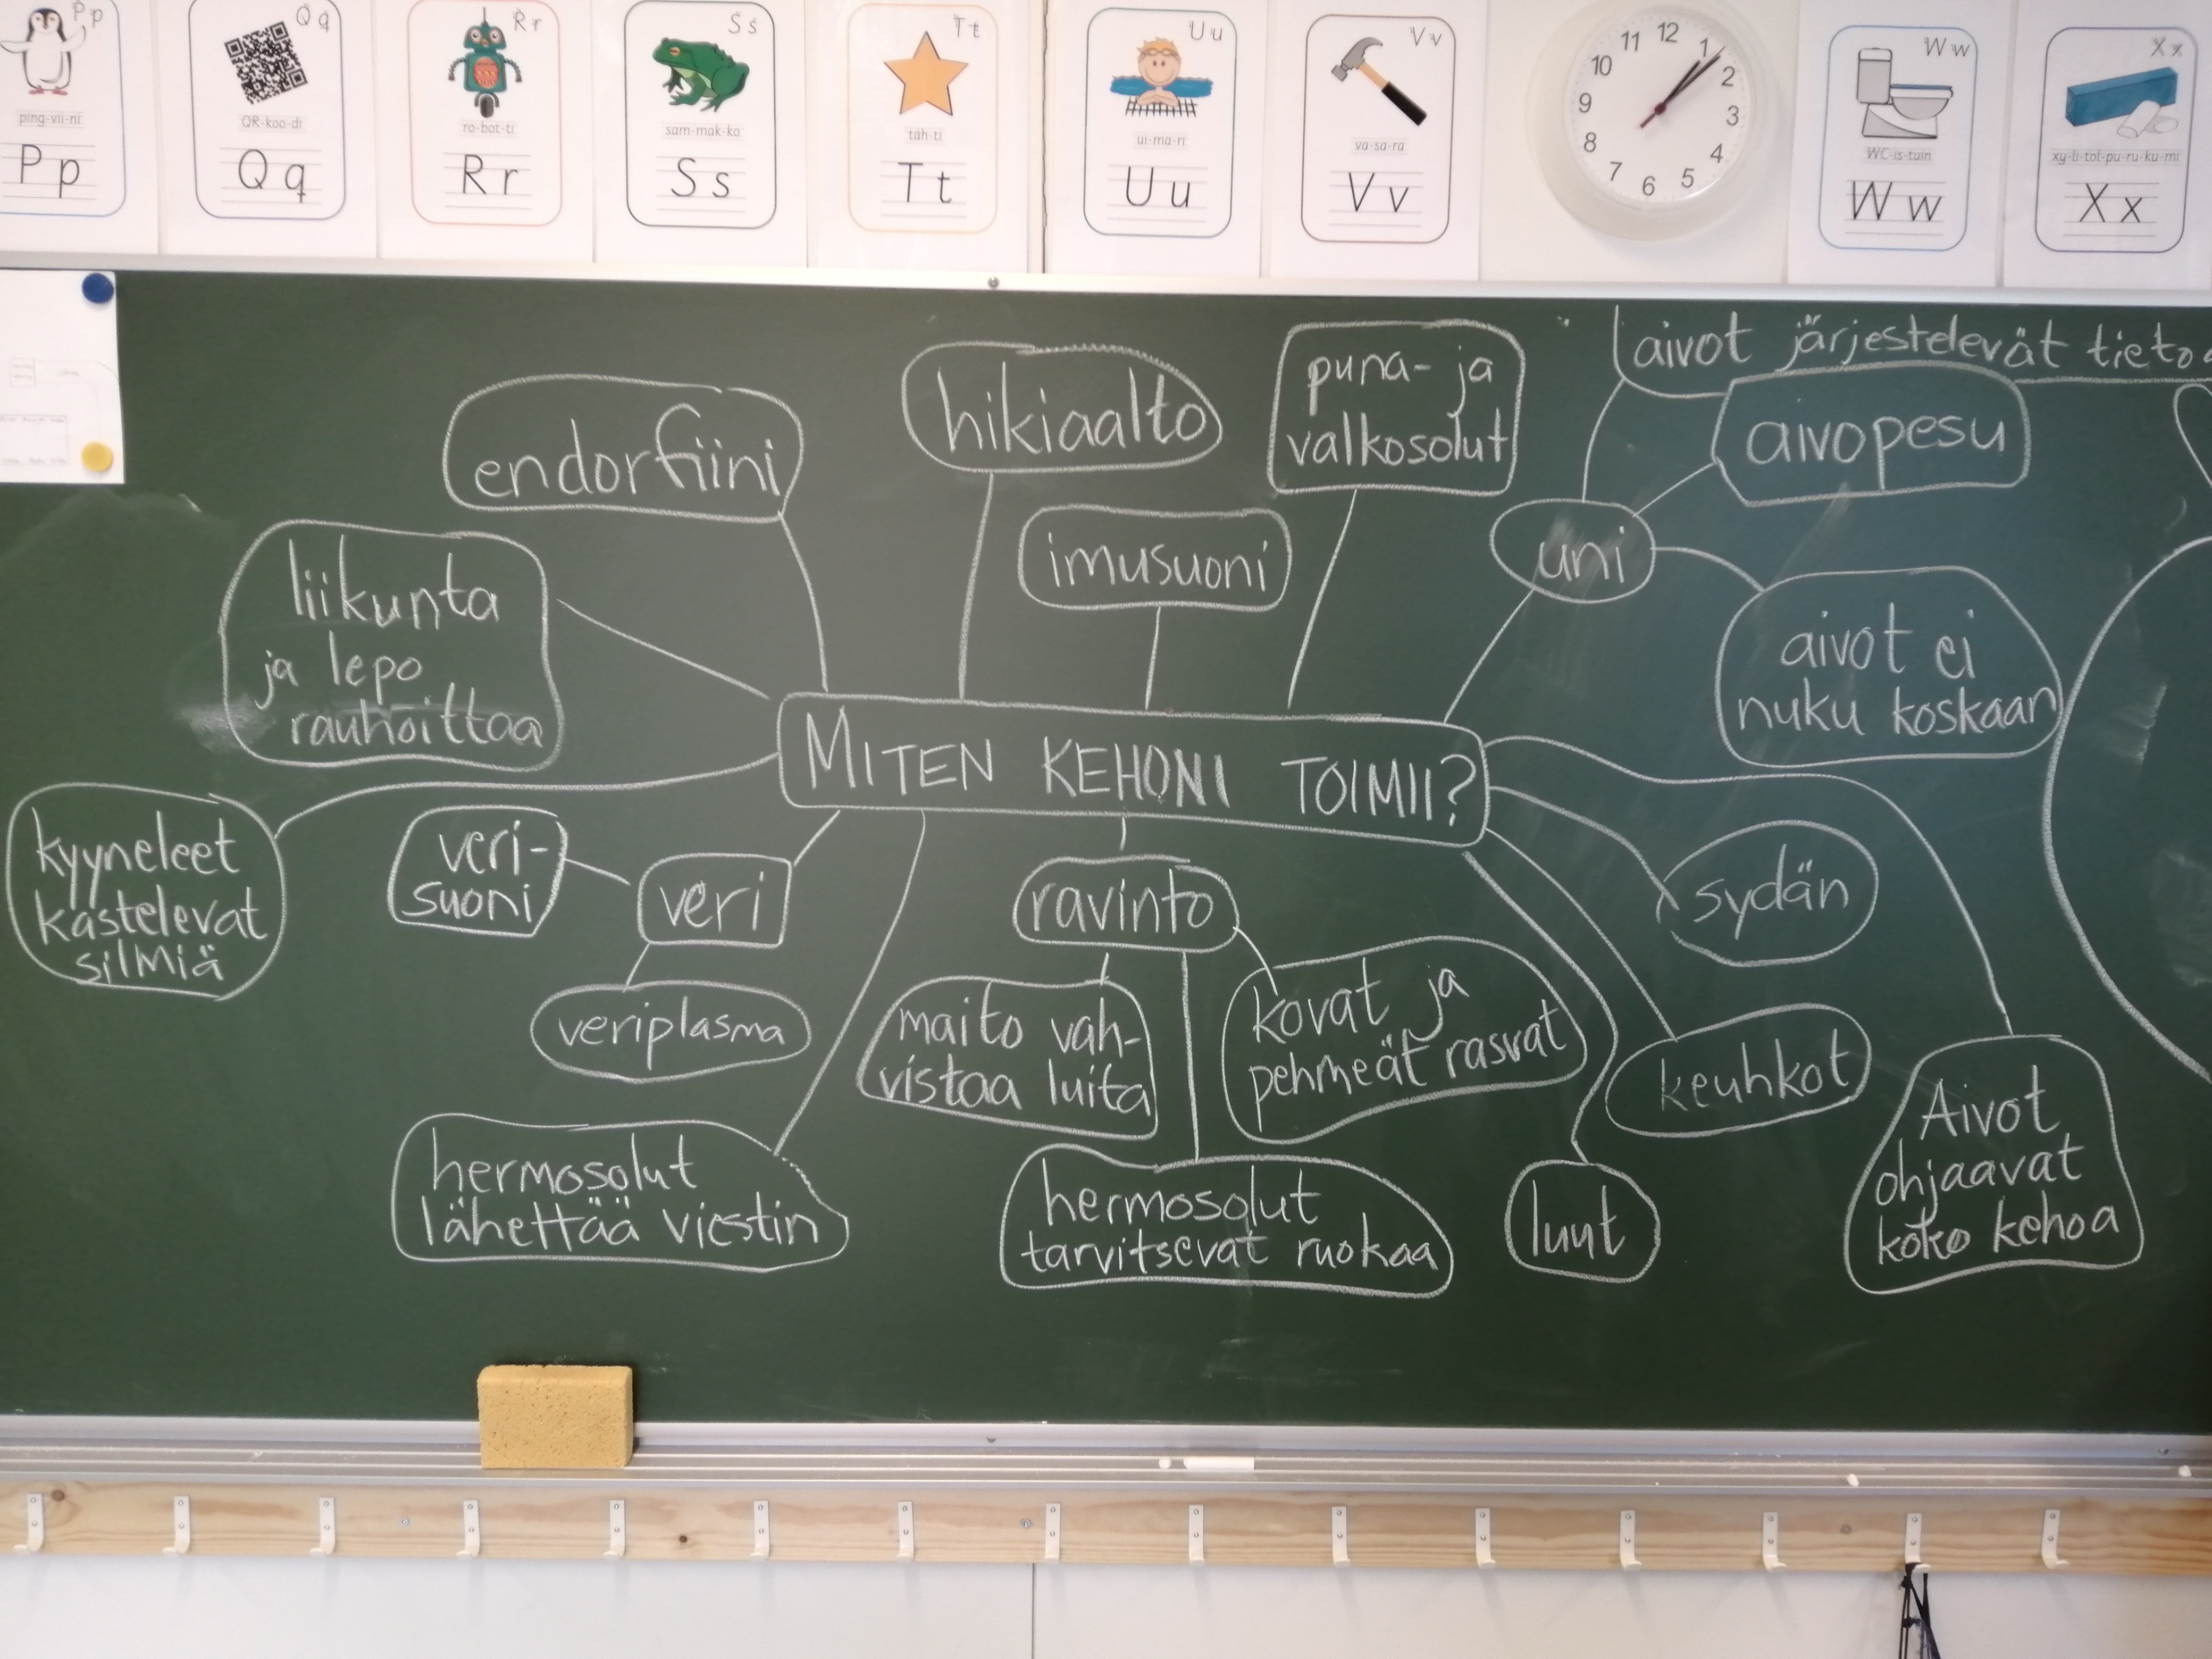 Pp
ping-vii-ni
P p
Qq
QR-koo-di
Q q
Rr
ro-bot-ti
R r
Ss
sam-mak-ko
S s
Tt
täh-ti
T t
Uu
ui-ma-ri
U u
Vv
va-sa-ra
V v
12
1
2
3
4
5
6
7
8
9
10
11
Ww
WC-is-tuin
W w
Xx
xy-li-tol-pu-ru-ku-mi
X x
aivot järjestelevät
aivopesu
uni
aivot ei
nuku koskaan
puna- ja
valkosolut
hikiaalto
imusuoni
endorfiini
liikunta
ja lepo
rauhoittaa
MITEN KEHONI TOIMII?
kyyneleet
kastelevat
silmiä
veri-
suoni
veri
veriplasma
hermosolut
lähettää viestin
ravinto
maito vah-
vistaa luita
kovat ja
pehmeät rasvat
hermosolut
tarvitsevat ruokaa
luut
keuhkot
sydän
Aivot
ohjaavat
koko kehoa